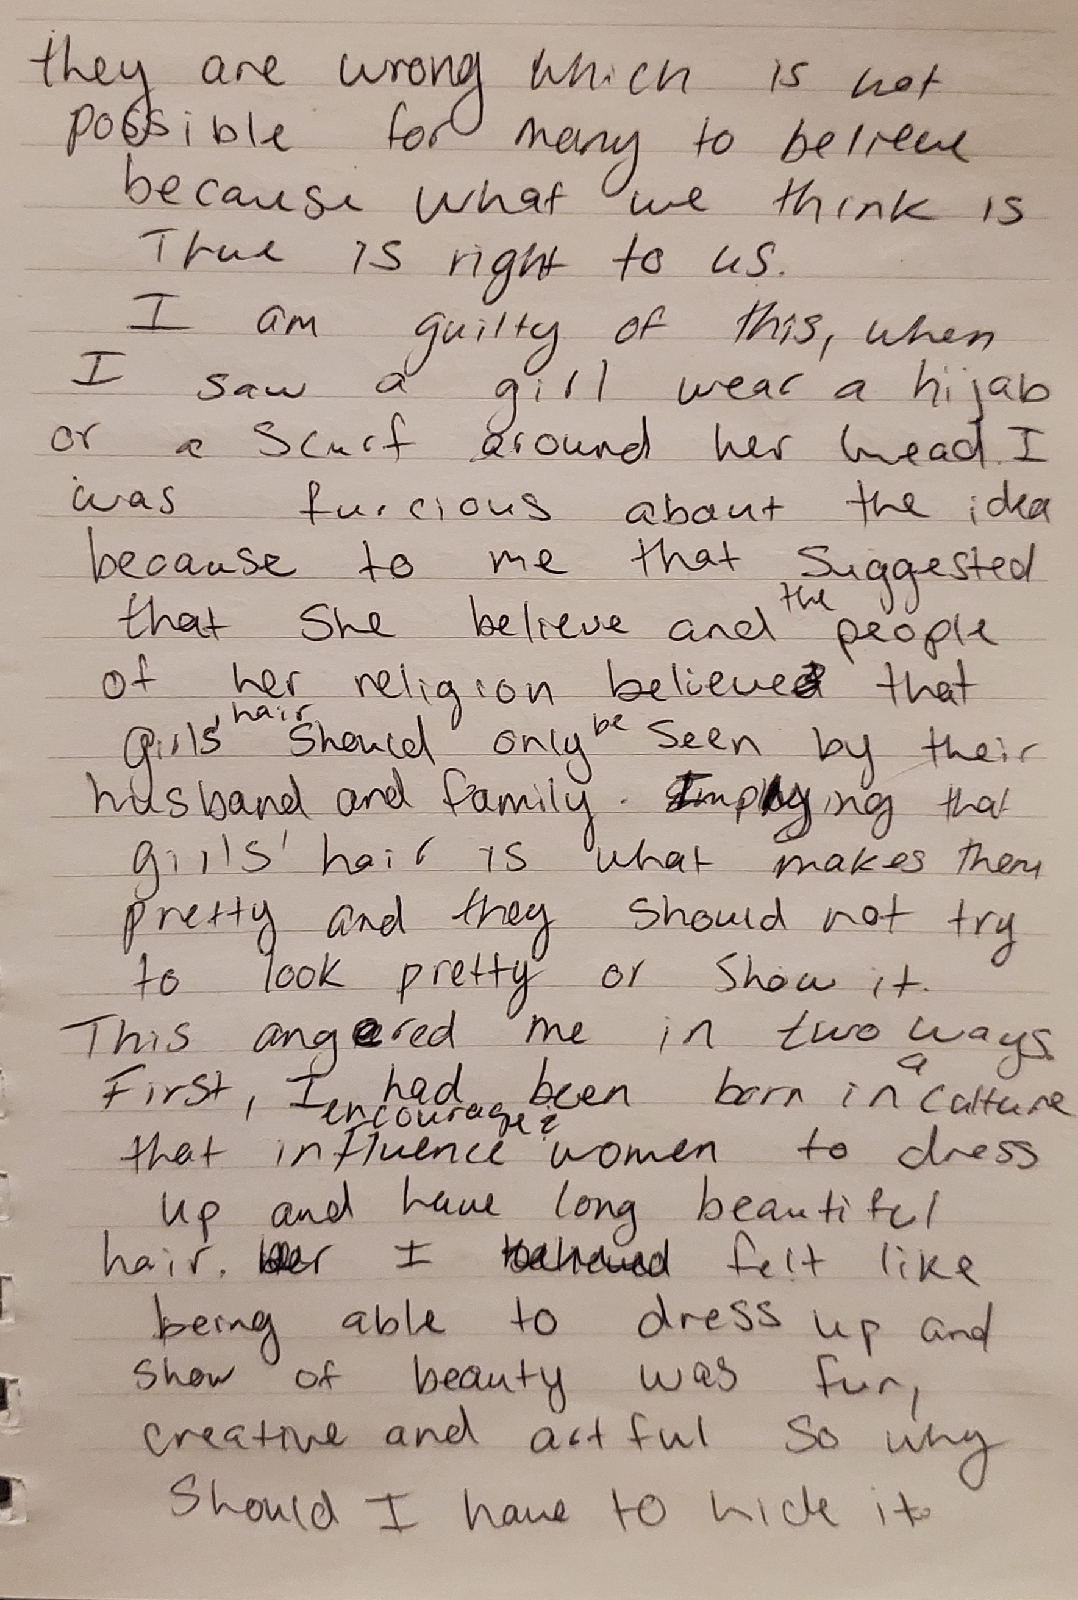 they are wrong which is not
possible for many to believe
because what we think is
True is right to us.
I am guilty of this, when
I saw a girl wear a hijab
or a scurf around her head. I
was furcious about the idea
because to me that suggested
the
that She believe and people
of her religion believed that
hair be
girls' should only seen by their
husband and family. Implying that
girls' hair is what makes them
pretty and they should not try
to look pretty or show it.
This angered me in two ways
a
First, I had been born in culture
encourage
that influence women to dress
up and have long beautiful
hair. I believed felt like
being able to dress up and
show of beauty was fun,
creative and artful so why
Should I have to hide it